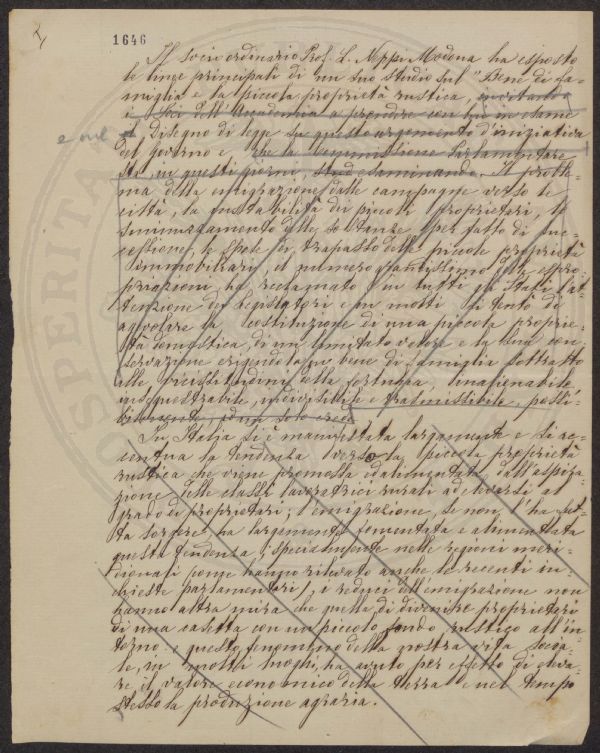 1646
Il socio ordinario Prof. L. Neppi Modona ha esposto
le linee principali di un suo studio sul "Bene di fa-
miglia e la piccola proprietà rustica, invitando
i Soci dell'Accademia a prendere con lui in esame
il disegno di legge su questo argomento d'iniziativa
e nel
del governo e che la Commissione Parlamentare
sta in questi giorni esaminando. Il proble-
ma della emigrazione dalle campagne verso le
città, la instabilità di piccoli proprietari, lo
sminuzzamento delle sostanze per fatto di suc-
cessione, le spese di trapasso delle piccole proprietà
immobiliari, il numero grandissimo di espro-
priazioni, ha reclamato in tutti gli Stati l'at-
tenzione dei legislatori e in molti si tentò di
agevolare la costituzione di una piccola proprie-
tà domestica, di un limitato valore e la sua con-
servazione erigendola in bene di famiglia sottratto
alle vicissitudini della fortuna, inalienabile,
insequestrabile, indivisibile e trasmissibile, possi-
bilmente, ad un solo erede.
In Italia si è manifestata largamente e si ac-
centua la tendenza verso la piccola proprietà
rustica che viene promossa ed alimentata dall'aspira-
zione delle classi lavoratrici rurali ad elevarsi al
grado di proprietari; l'emigrazione, se non l'ha fat-
ta sorgere ha largamente fomentata e alimentata
questa tendenza (specialmente nelle regioni meri-
dionali come hanno rilevato anche le recenti in-
chieste parlamentari), i reduci dell'emigrazione non
hanno altra mira che quella di divenire proprietari
di una casetta con un piccolo fondo rustico all'in-
torno: e questo fenomeno della nostra vita socia-
le, in molti luoghi, ha avuto per effetto di eleva-
re il valore economico della terra e nel tempo
stesso la produzione agraria.